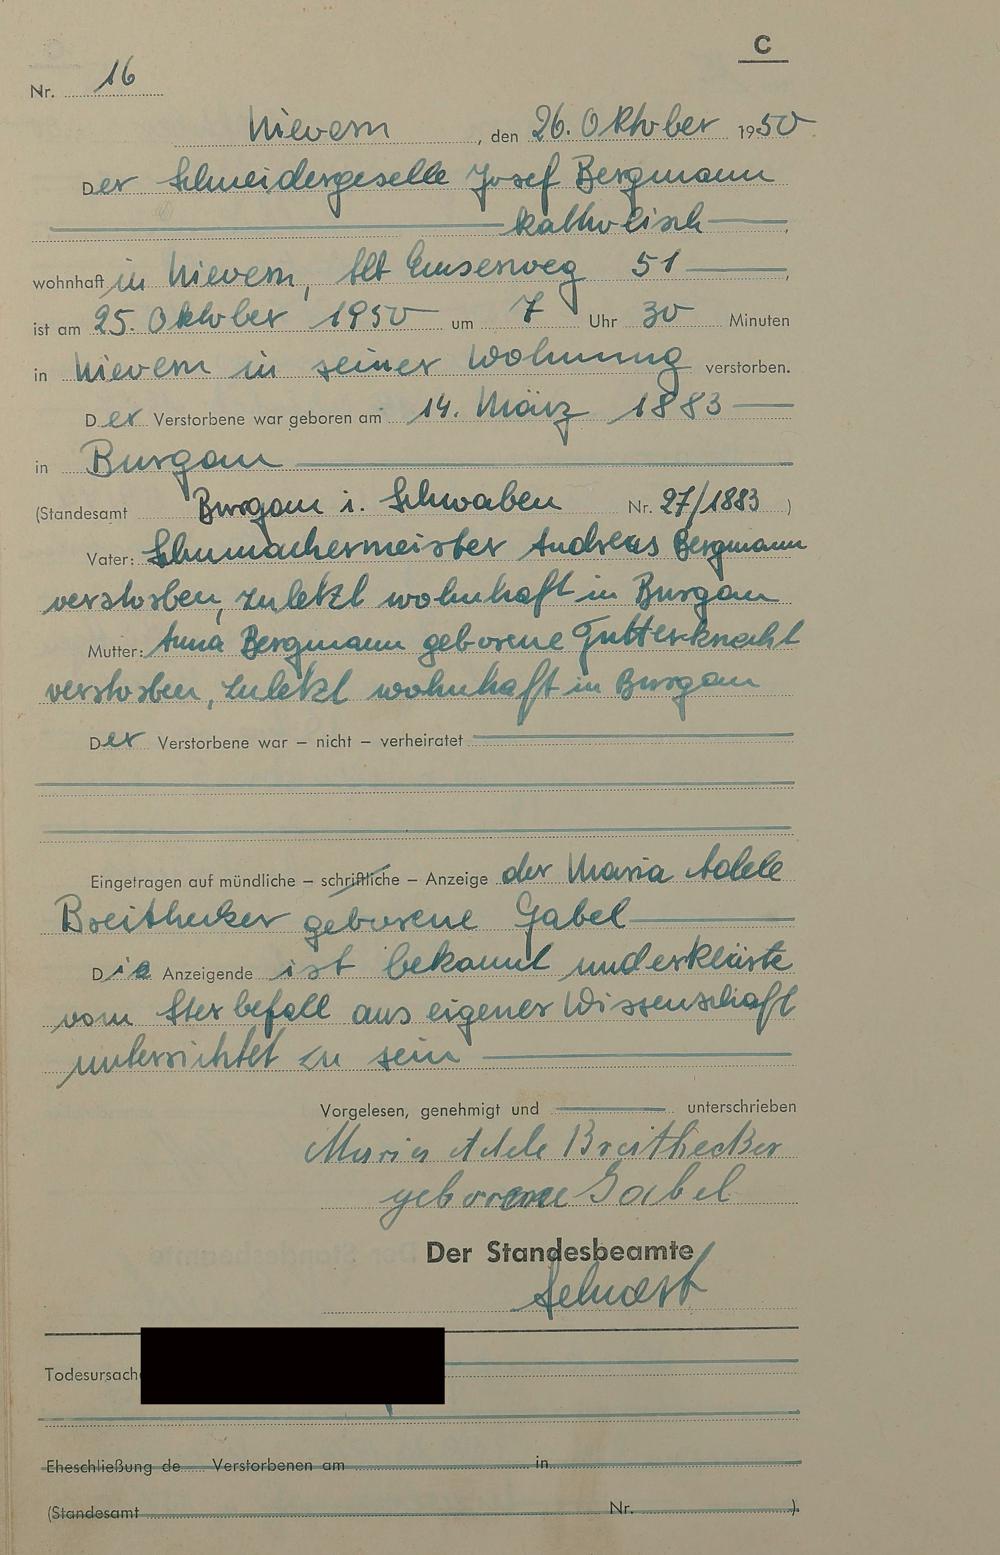 C
Nr. 16
Nievern, den 26. Oktober 1950
Der Schneidergeselle Josef Bergmann
katholisch,
wohnhaft in Nievern, Alt Emserweg 51,
ist am 25. Oktober 1950 um 7 Uhr 30 Minuten
in Nievern in seiner Wohnung verstorben.
Der Verstorbene war geboren am 14. März 1883
in Burgau
(Standesamt Burgau i. Schwaben Nr. 27/1883)
Vater: Schumachermeister Andreas Bergmann
verstorben, zuletzt wohnhaft in Burgau
Mutter: Anna Bergmann geborene Gutterknecht
verstorben, zuletzt wohnhaft in Burgau
Der Verstorbene war – nicht – verheiratet
Eingetragen auf mündliche – schriftliche – Anzeige der Maria Adele
Breithecker geborene Gabel
Die Anzeigende ist bekannt und erklärte
vom Sterbefall aus eigener Wissenschaft
unterrichtet zu sein
Vorgelesen, genehmigt und unterschrieben
Maria Adele Breithecker
geborene Gabel
Der Standesbeamte
Todesursach
Eheschließung de Verstorbenen am in
(Standesamt Nr. )